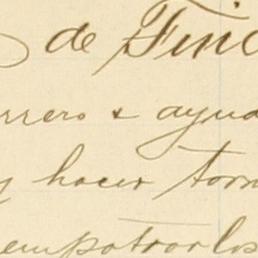 de Finc
rrero & ayud
y hacer torn
empotrarlos